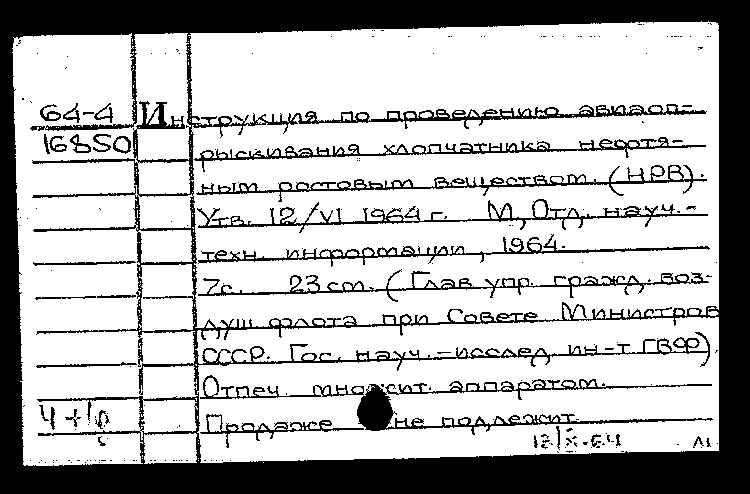 64-4 Инструкция по проведению авиаоп-
16850 рыскивания хлопчатника нефтя-
ным ростовым веществом. (НРВ).
Утв. 12/VI 1964 г. М, Отд. науч.-
техн. информации, 1964.
7с. 23 cm. (Глав упр. гражд. воз-
душ флота при Совете Министров
СССР. Гос. науч.-исслед. ин-т ГВФ)
Отпеч. множит. аппаратом.
Продаже не подлежит
12/X-64